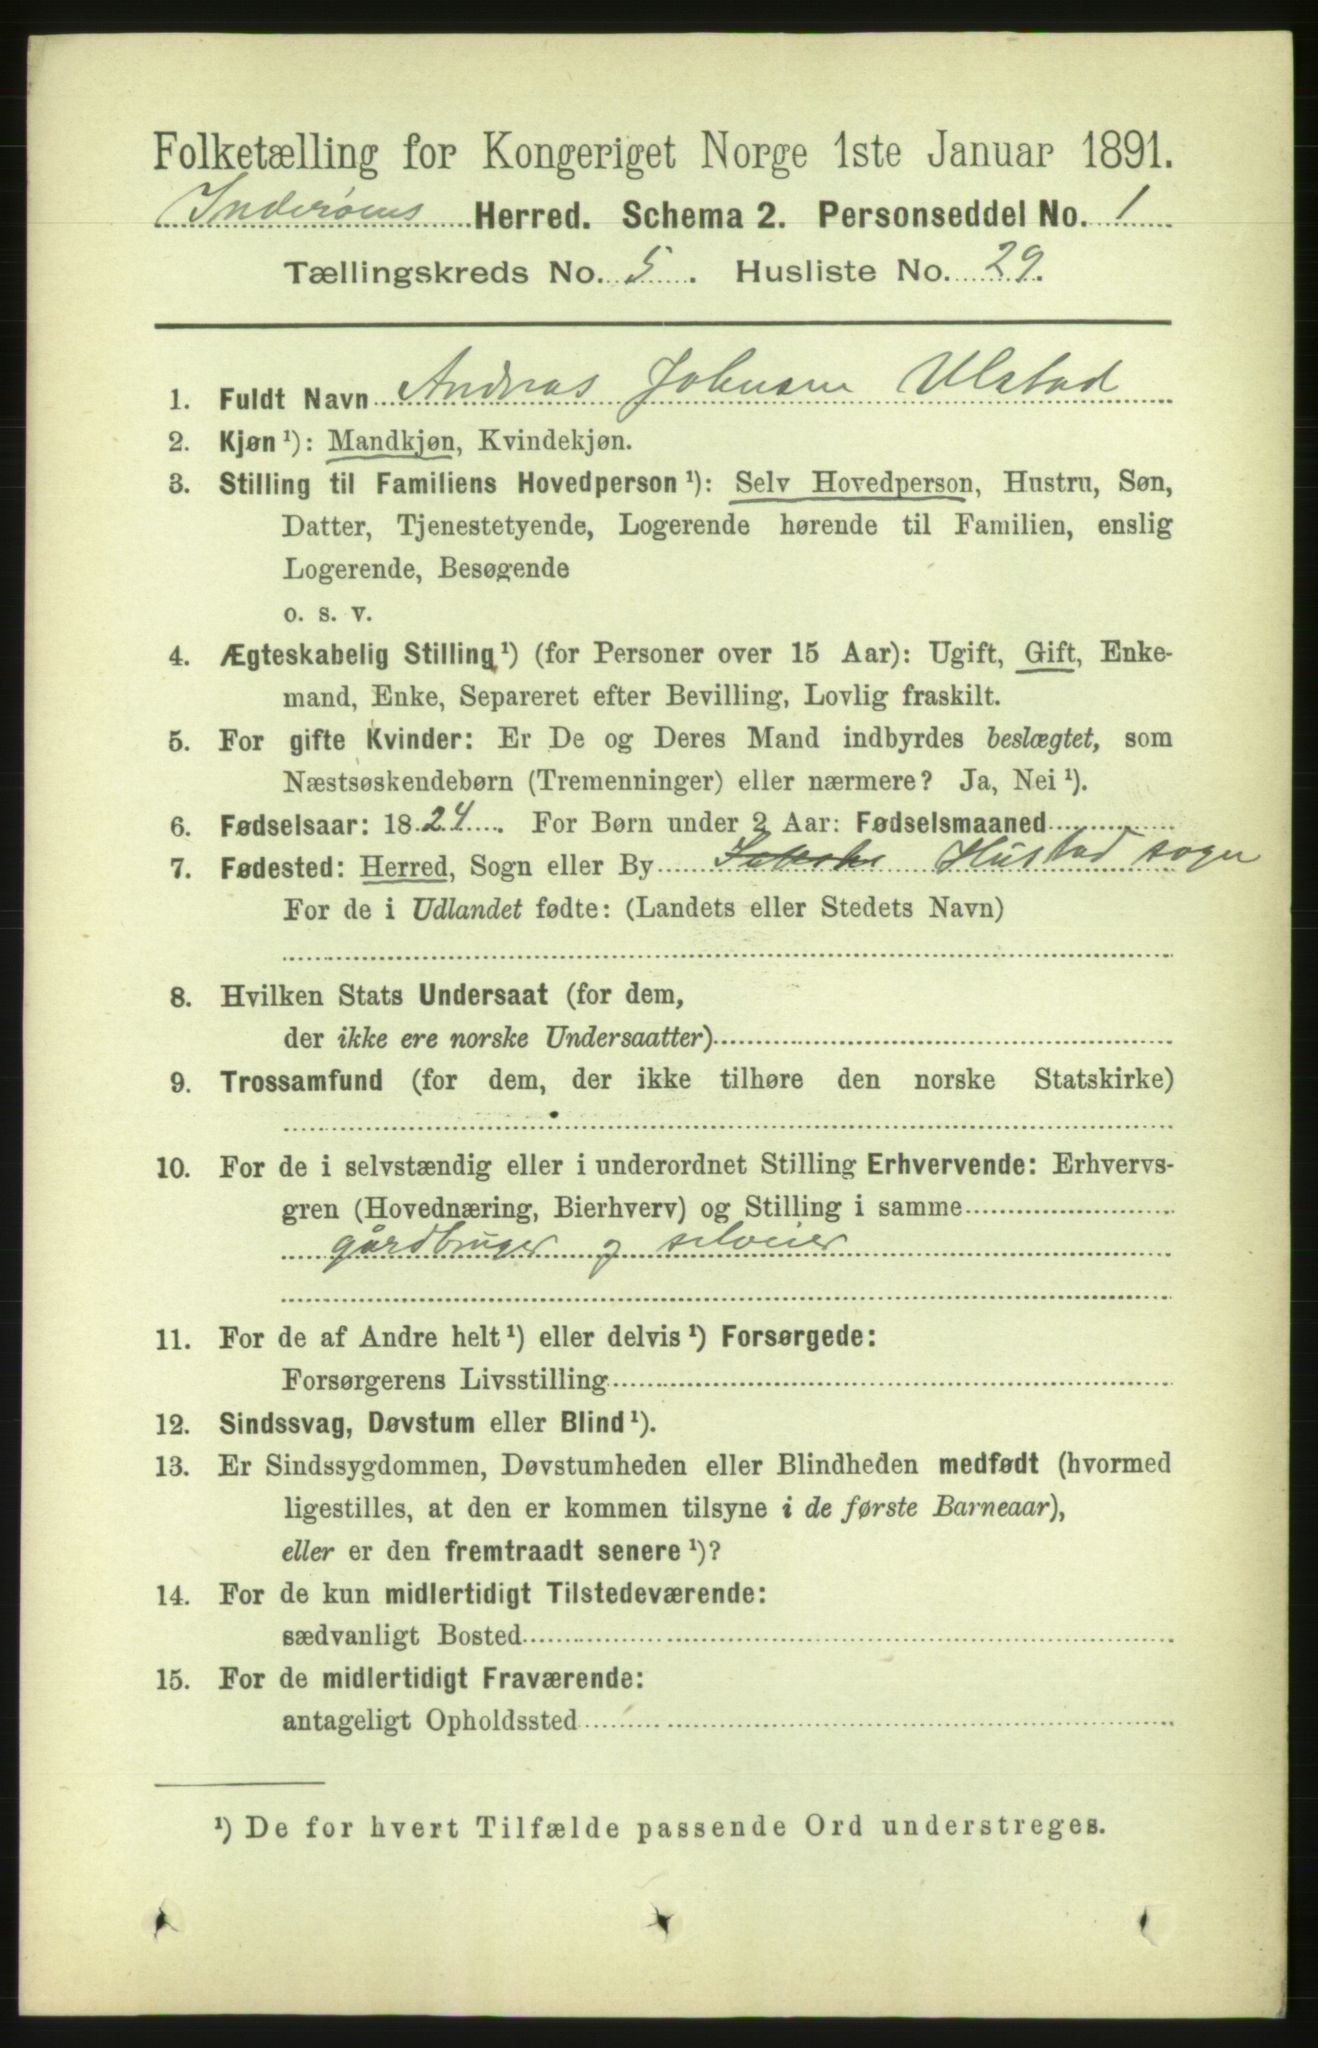 Folketælling for Kongeriget Norge 1ste Januar 1891.
Inderøens Herred. Schema 2. Personseddel No. 1
Tællingskreds No. 5. Husliste No. 29.
1. Fuldt Navn Andreas Johnsen Ulstad
2. Kjøn ¹): Mandkjøn, Kvindekjøn.
3. Stilling til Familiens Hovedperson ¹): Selv Hovedperson, Hustru, Søn,
Datter, Tjenestetyende, Logerende hørende til Familien, enslig
Logerende, Besøgende
o. s. v.
4. Ægteskabelig Stilling ¹) (for Personer over 15 Aar): Ugift, Gift, Enke-
mand, Enke, Separeret efter Bevilling, Lovlig fraskilt.
5. For gifte Kvinder: Er De og Deres Mand indbyrdes beslægtet, som
Næstsøskendebørn (Tremenninger) eller nærmere? Ja, Nei ¹).
6. Fødselsaar: 1824. For Børn under 2 Aar: Fødselsmaaned
7. Fødested: Herred, Sogn eller By Hustad sogn
For de i Udlandet fødte: (Landets eller Stedets Navn)
8. Hvilken Stats Undersaat (for dem,
der ikke ere norske Undersaatter)
9. Trossamfund (for dem, der ikke tilhøre den norske Statskirke)
10. For de i selvstændig eller i underordnet Stilling Erhvervende: Erhvervs-
gren (Hovednæring, Bierhverv) og Stilling i samme
gårdbruger og selveier
11. For de af Andre helt ¹) eller delvis ¹) Forsørgede:
Forsørgerens Livsstilling
12. Sindssvag, Døvstum eller Blind ¹).
13. Er Sindssygdommen, Døvstumheden eller Blindheden medfødt (hvormed
ligestilles, at den er kommen tilsyne i de første Barneaar),
eller er den fremtraadt senere ¹)?
14. For de kun midlertidigt Tilstedeværende:
sædvanligt Bosted
15. For de midlertidigt Fraværende:
antageligt Opholdssted
¹) De for hvert Tilfælde passende Ord understreges.